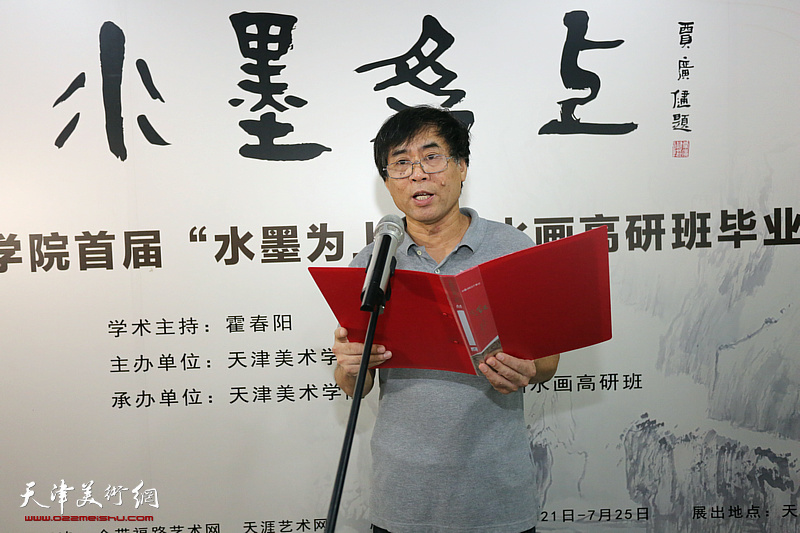 水墨为上
贾广健题
学院首届“水墨为上 水画高研班毕业
学术主持：霍春阳
主办单位：天津美术学
承办单位：天津美术学 水画高研班
21日-7月25日 展出地点：天
天津美術網
www.022meishu.com
金带福路艺术网 天涯艺术网